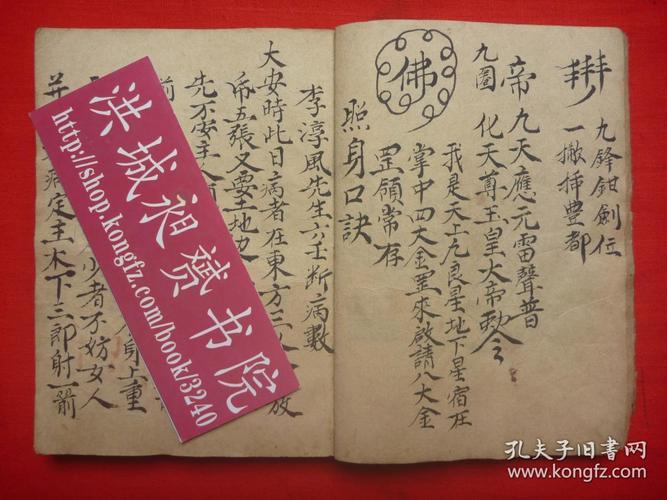 九鋒鉗劍位
一撇插豊都
帝九天應元雷聲普
九圖化天尊玉皇大帝勅令
佛
我是天上九良星地下星宿在
掌中四大金罡來啟請八大金
罡領常存
照身口訣
李淳風先生六壬斷病數
大安時此日病者在東方三
放
帋五張又要土地
先不安主人
前
身上重
少者不妨女人
病定主木下三郎射一箭
洪城昶赟书院
http://shop.kongfz.com/book/3240
孔夫子旧书网
www.kongfz.com